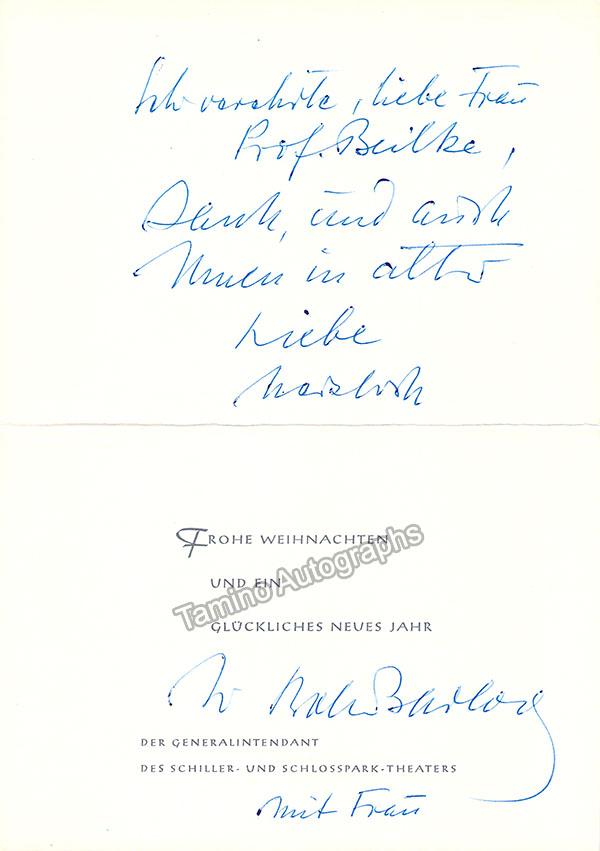 Sehr verehrte, liebe Frau
Prof. Beilke,
Dank, und auch
Ihnen in alter
Liebe
herzlich
FROHE WEIHNACHTEN
UND EIN
GLÜCKLICHES NEUES JAHR
Tamino Autographs
Ihr Boleslaw Barlog
DER GENERALINTENDANT
DES SCHILLER- UND SCHLOSSPARK-THEATERS
mit Frau